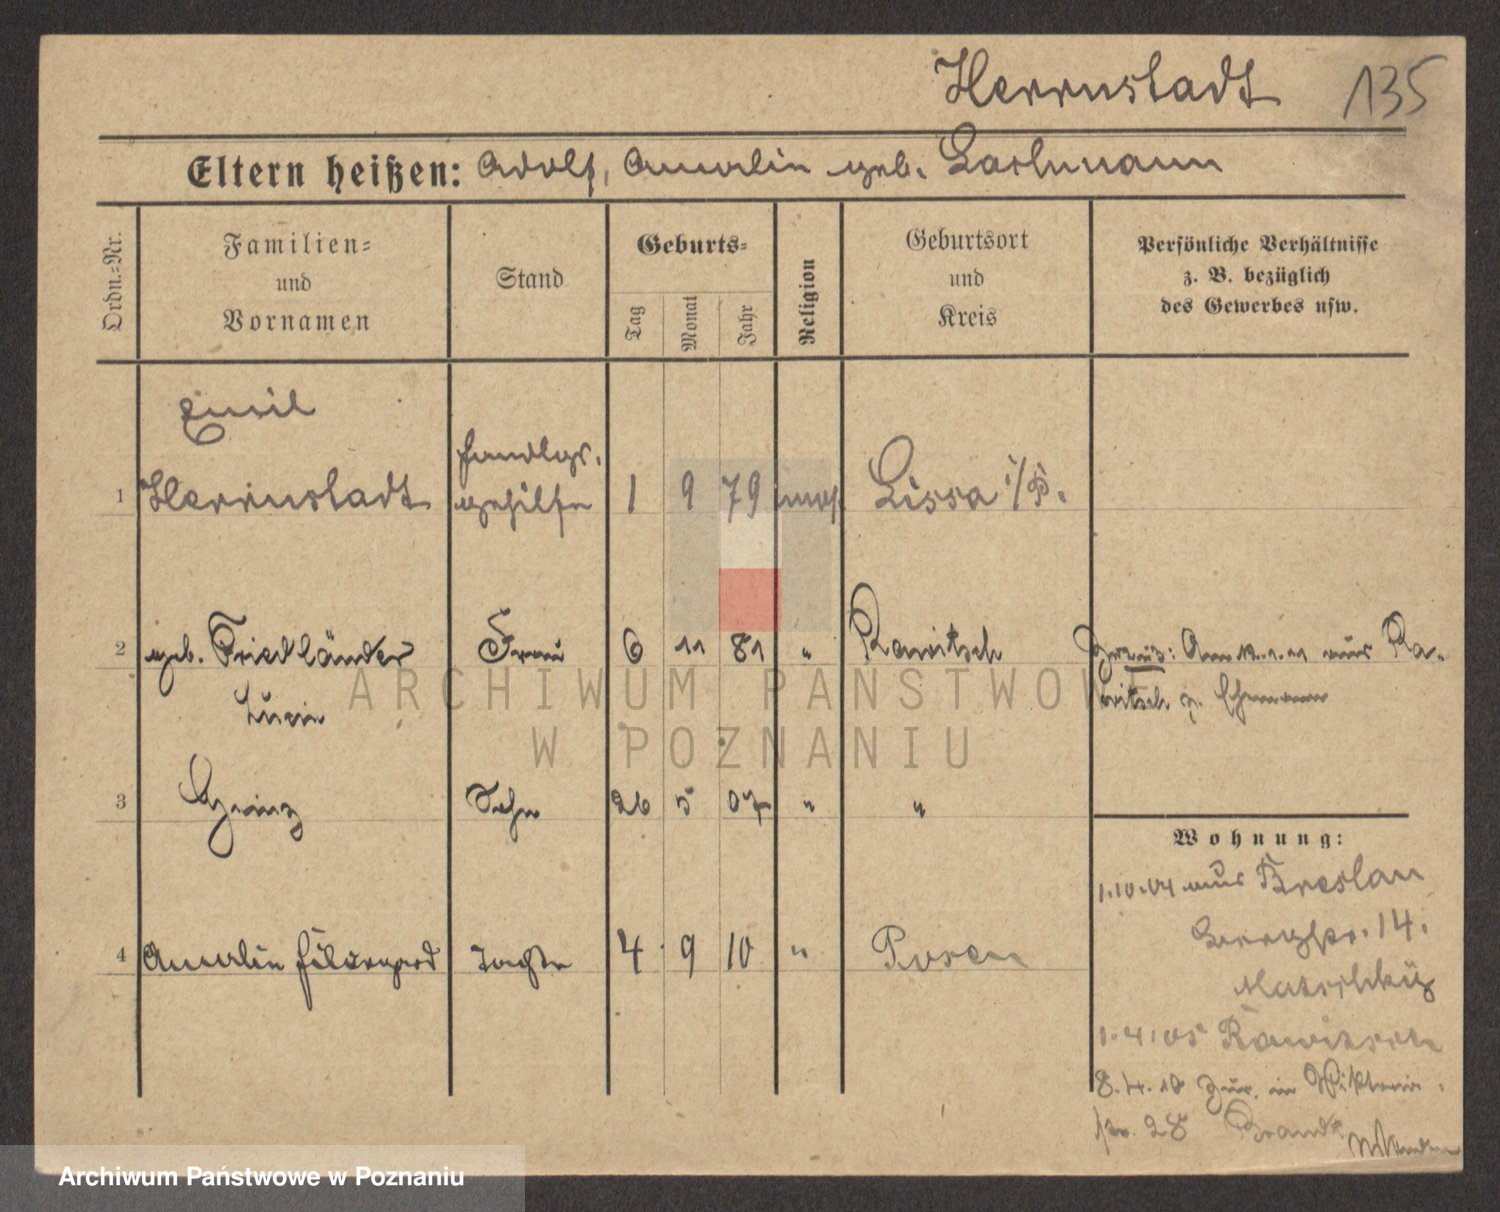 Herrnstadt 135
Eltern heißen: Adolf, Amalie geb. Lachmann
Ordn.-Nr.
Familien-
und
Vornamen
Stand
Geburts-
Tag
Monat
Jahr
Religion
Geburtsort
und
Kreis
Persönliche Verhältnisse
z. B. bezüglich
des Gewerbes usw.
Emil
1 Herrnstadt
Handlgs.
gehilfe
1 9 79 mos. Lissa i/P.
2 geb. Friedländer Frau 6 11 81 " Rawitsch
Lucie
am 12.1.11 aus Ra-
witsch z. Ehemann
3 Heinz Sohn 26 5 07 " "
Wohnung:
1.10.04 aus Breslau
14.
4 Amalie Hildegard Tochter 4 9 10 " Posen
1.4.05 Rawitsch
8.4.10 zur. in Viktoria-
str. 28 Brandt
ARCHIWUM PAŃSTWOWE
W POZNANIU
Archiwum Państwowe w Poznaniu